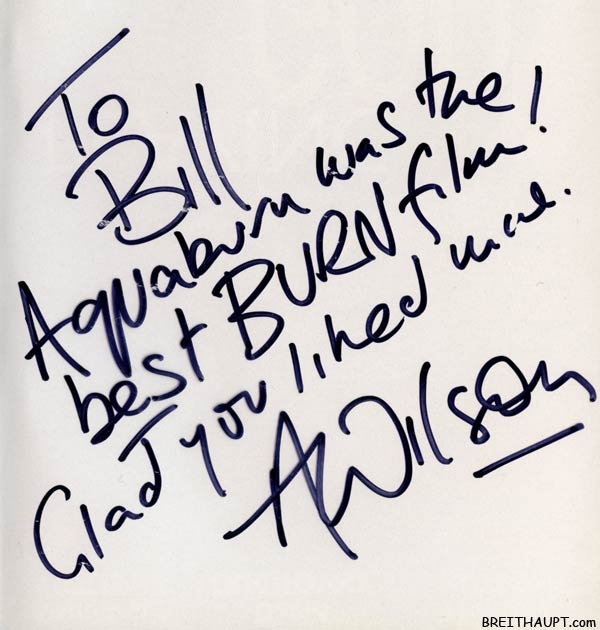 To
Bill
Aquaburn was the
best BURN film!
Glad you liked mine.
AWilson
BREITHAUPT.com